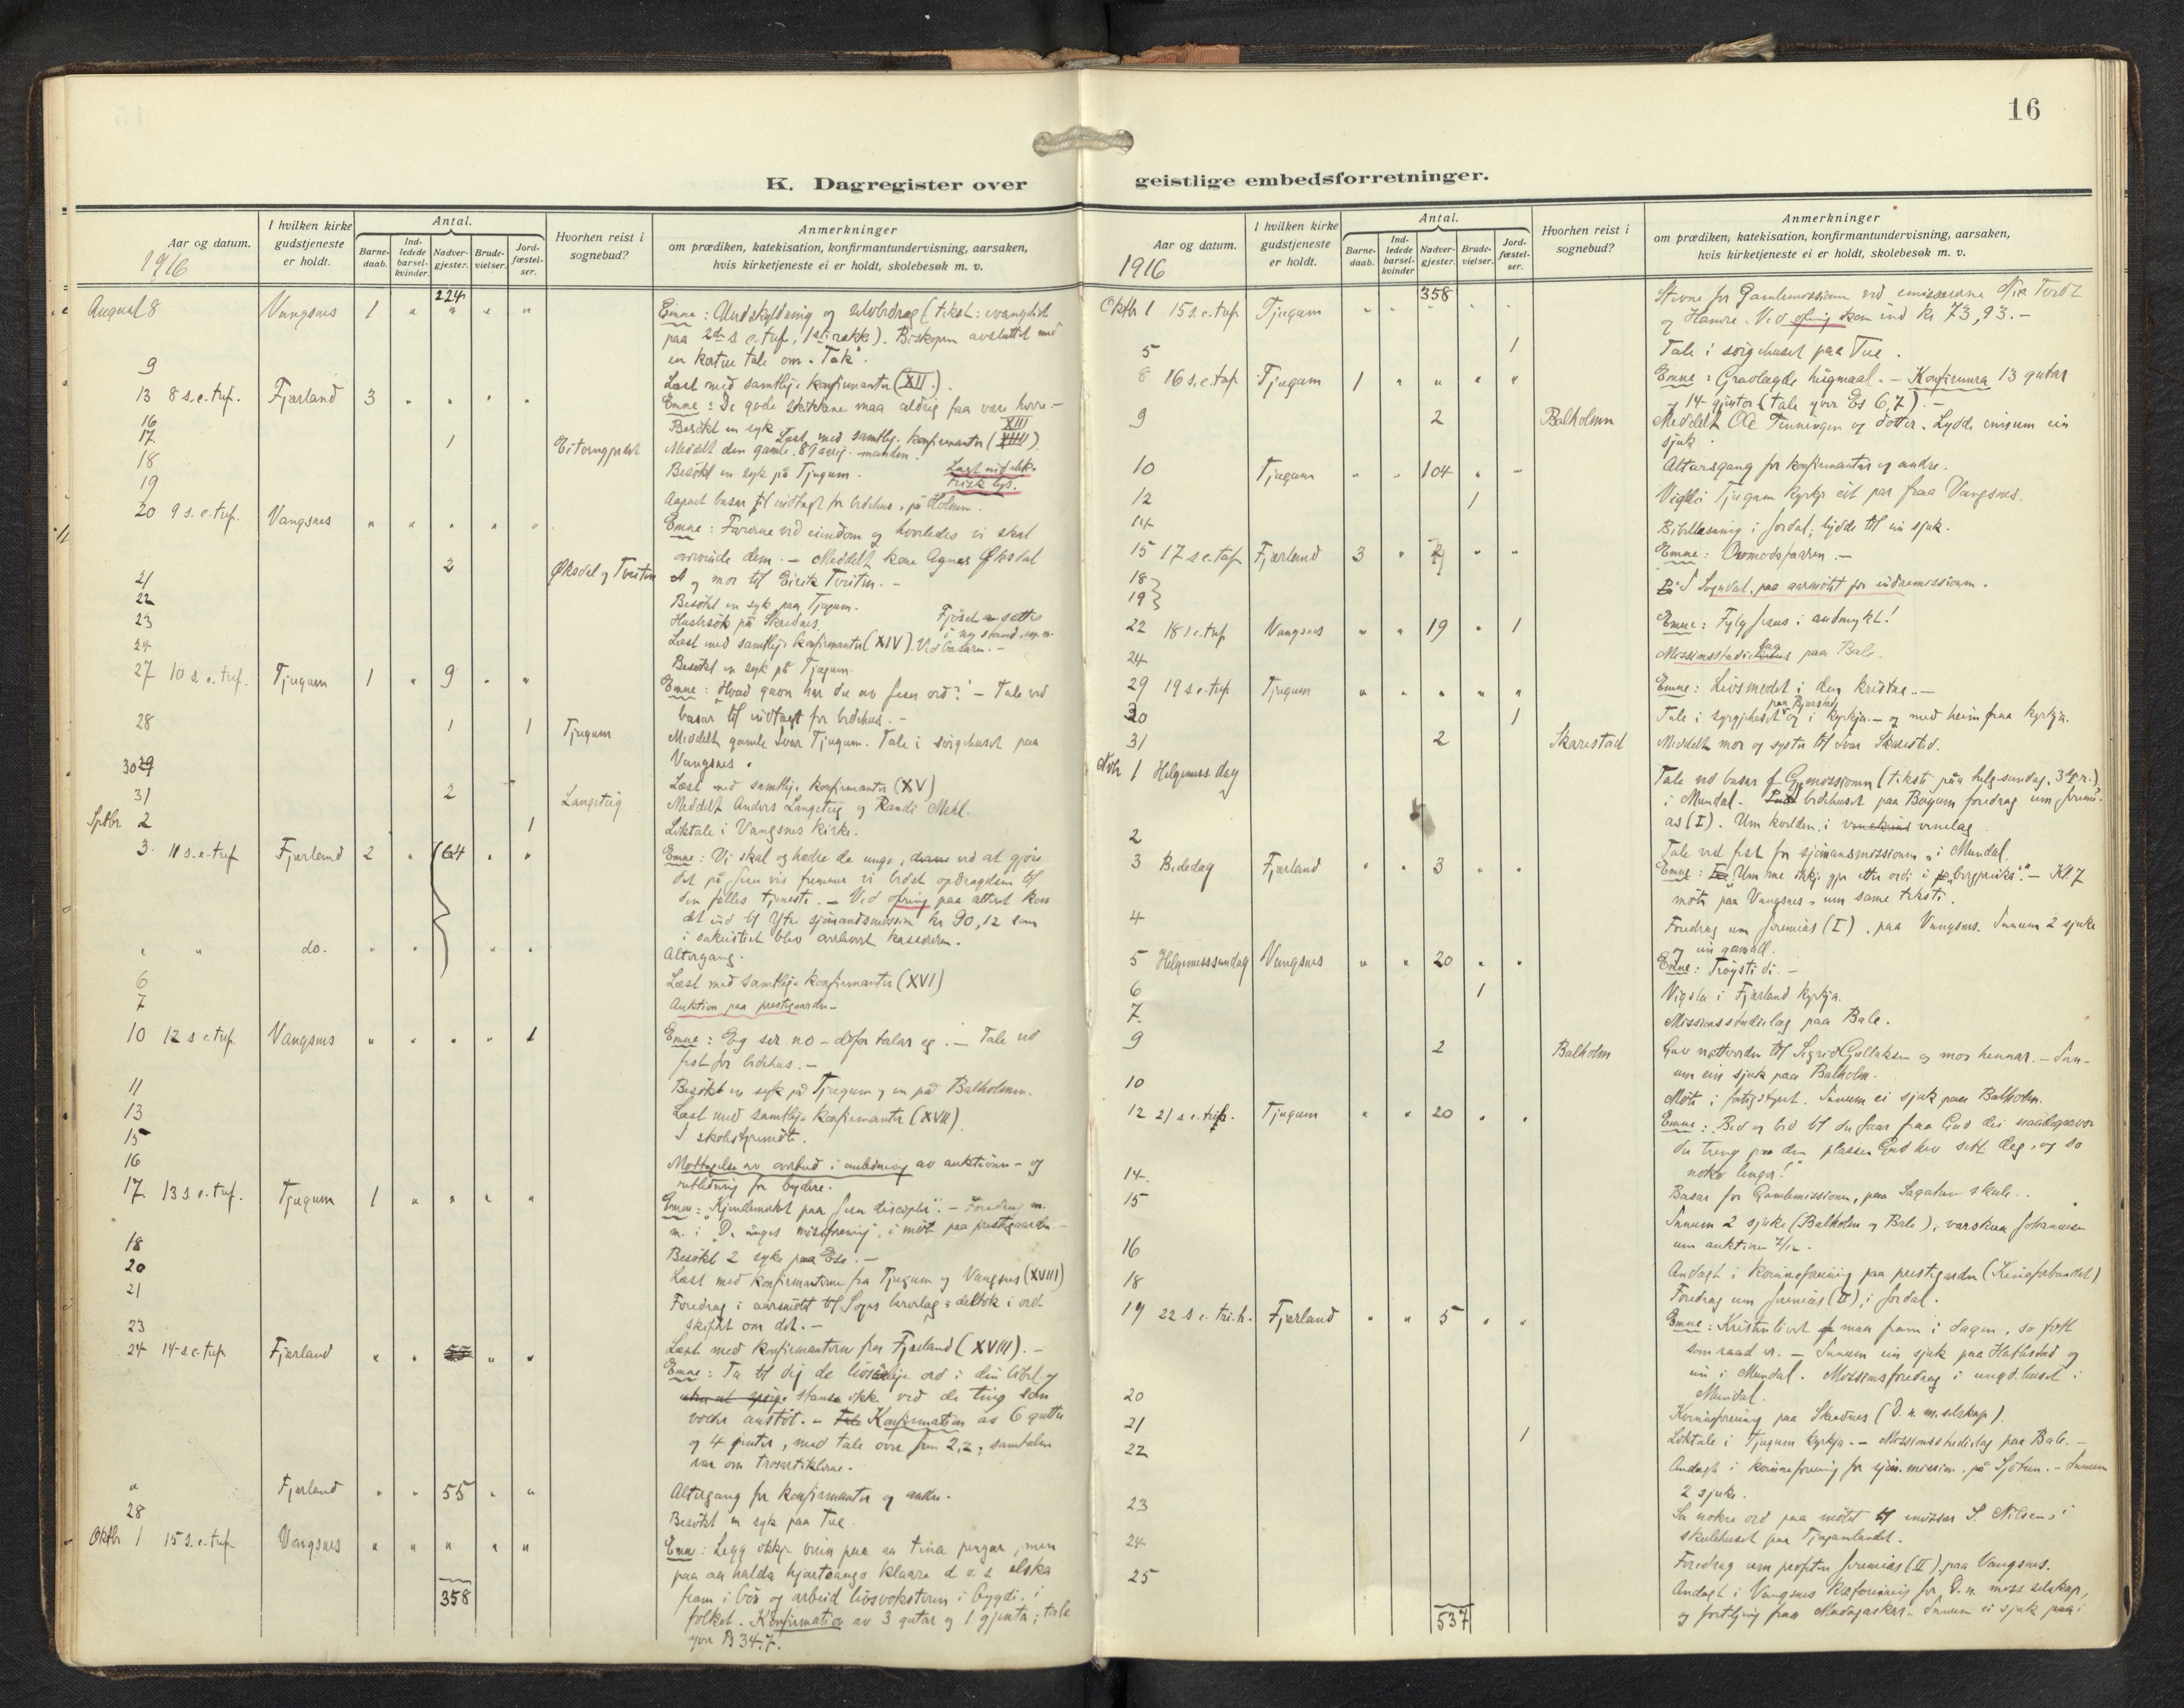 16
K. Dagregister over geistlige embedsforretninger.
Aar og datum.
1916
I hvilken kirke gudstjeneste er holdt.
Antal.
Barne-daab.
Ind-ledede barsel-kvinder.
Nadver-gjester.
Brude-vielser.
Jord-fæstel-ser.
Hvorhen reist i sognebud?
Anmerkninger
om prædiken, katekisation, konfirmantundervisning, aarsaken,
hvis kirketjeneste ei er holdt, skolebesøk m. v.
224
August 8 Vangsnes 1 " " " " Emne: og (tekst: evangeliet
paa 2den s. e. tref, 1ste række). Biskopen avsluttet med
en kortere tale om "Tak".
9 Læst med samtlige konfirmanter (XII).
13 8 s. e. tref. Fjærland 3 " " " " Emne: De gode maa aldrig faa være herre.-
16 Besøkt en syk. Læst med samtlige konfirmanter (XIII).
17 1 Meddelt den gamle 89 aarig manden.
18 Besøkt en syk på Tjugum.
19 Aapnet basar til indtægt for bedehus, på Holmen.
20 9 s. e. tref. Vangsnes " " " " " Emne: Farerne ved eiendom og hvorledes vi skal
2 Øksdal og Tveiten overvinde dem. - Meddelt kone Agnes Øksdal
21 og mor til Eirik Tveiten. -
22 Besøkt en syk paa Tjugum.
23 Husbesøk på Skrednes.
24 Læst med samtlige konfirmanter (XIV). Ved basaren. -
Besøkt en syk på Tjugum.
27 10 s. e. tref. Tjugum 1 " 9 " " Emne: Hvad gavn har du av Jesu ord? - Tale ved
basar til indtægt for bedehus. -
28 1 1 Tjugum Meddelt gamle Ivar Tjugum. Tale i sørgehuset paa
Vangsnes.
30 Læst med samtlige konfirmanter (XV)
31 2 Langeteig Meddelt Anders Langeteig og Randi Mehl.
Septbr 2 1 Liktale i Vangsnes kirke.
3. 11 s. e. tref Fjærland 2 " 64 " " Emne: Vi skal og hædre de unge, ved at gjøre
det på Jesu vis fremmer vi bedst opdragelsen til
den fælles tjeneste. - Ved ofring paa alteret kom
det ind til Ytre sjømandsmission kr 90,12 som
i sakristiet blev anbetrodd kassereren.
" " do. " " " " Altergang.
6 Læst med samtlige konfirmanter (XVI)
7 Auktion paa prestegaarden -
10 12 s e. tref. Vangsnes " " " " 1 Emne: Eg ser no - difor talar eg. - Tale ved
fest for bedehus. -
11 Besøkt en syk på Tjugum og en på Balholmen.
13 Læst med samtlige konfirmanter (XVII).
15 I skolestyremøte.
16 Mottagelse av overbud i anledning av auktionen - og
rettledning for bydere.
17 13 s e. tref. Tjugum 1 " " " " Emne: "Kjendemerket paa Jesu disciple". - Foredrag m.
m. i "De unges misforening", i møte paa prestegaarden -
18 Besøkt 2 syke paa Ese. -
20 Læst med konfirmanterne fra Tjugum og Vangsnes (XVIII)
21 Foredrag i aarsmøtet til Sogns lærerlag; deltok i ord-
skiftet om det. -
23 Læst med konfirmanterne fra Fjærland (XVIII). -
24 14 s. e. tref Fjærland " " " " Emne: Ta til dig de ord i din bibel og
stanse ikke ved de ting som
vække anstøt. - Konfirmation av 6 gutter
og 4 jenter, med tale over Jon 2,2; samtalen
var om trosartiklerne.
" Fjærland " " 55 " " Altergang for konfirmanter og andre.
28 Besøkt en syk paa Tue.
Oktbr 1 15 s. e. tref Vangsnes " " " " " Emne: Legg ikkje vinn paa aa tena pengar, men
paa aa halda hjarteauga klaare d. e. å elska
fram i bøn og arbeid livsvoksteren i bygdi, i
folket. - Konfirmation av 3 gutar og 1 gjenta; tale
358
yver 34.7.
Aar og datum.
1916
I hvilken kirke gudstjeneste er holdt.
Antal.
Barne-daab.
Ind-ledede barsel-kvinder
Nadver-gjester.
Brude-vielser.
Jord-fæstel-ser.
Hvorhen reist i sognebud?
Anmerkninger
om prædiken, katekisation, konfirmantundervisning, aarsaken,
hvis kirketjeneste ei er holdt, skolebesøk m. v.
358
Oktbr 1 15 s. e. tref Tjugum " " " " " Stevne for Gamlemissionen ved emissærerne
og Hamre. Ved ofring kom ind kr 73,93. -
5 1 Tale i sørgehuset paa Tue.
8 16 s. e. tref Tjugum 1 " " " " Emne: Gravlagde hugmaal. - Konfirmera 13 gutar
og 14 gjentor (tale yver Es 6,7). -
9 2 Balholmen Meddelt Ole og dotter. Lydde innum ein
sjuk.
10 Tjugum " " 104 " " Altarsgang for konfirmantar og andre.
12 1 Vigsla i Tjugum kyrkje eit par fraa Vangsnes.
14 Bibellesning i Jordal; lydde til ein sjuk.
15 17 s e. tref Fjærland 3 " " " Emne: Ovmodsfaaren. -
18
19 } I Sogndal, paa aarmøtet for indremissionen.
22 18 s e. tref Vangsnes " " 19 " 1 Emne: Fylg Jesus i audmykt!
24 Missionsstudielag paa Bale.
29 19 s e. tref Tjugum " " " " " Emne: Livsmodet i den kristne. -
30 1 Tale i syrgjehuset paa og i kyrkja. - og med heim fraa kyrkja.
31 2 Skarestad Meddelt mor og syster til Ivar Skarestad.
Novbr 1 Helgemess dag Tale ved basar f. (tekst paa helg-sundag, 3dje r.)
i Mundal - bedehuset paa Bøyum foredrag um Jeremi-
as (I). Um kvelden i vinelag
2 Tale ved fest for sjømansmissionen, i Mundal.
3 Bededag Fjærland " " 3 " " Emne: Um me ikkje gjer etter ordi i "bergpreika". - Kl 7
møte paa Vangsnes, um same tekst.
4 Foredrag um Jeremias (I), paa Vangsnes. Innum 2 sjuke
og ein gamall.
5 Helgemessesundag Vangsnes " " 20 " " Emne: Trøysti di. -
6 1 Vigsla i Fjærland kyrkja.
7. Missionsstudielag paa Bale.
9 2 Balholm Gav nattverden til Sigrid Gullaksen og mor hennar. - Inn-
um ein sjuk paa Balholm.
10 Møte i fatigstyret. Innum ei sjuk paa Balholm.
12 21 s e. trif. Tjugum " " 20 " " Emne: Bed og bed til du faar fraa Gud dei naadegaavor
du treng paa den plassen Gud hev sett deg, og so
noko lenger!
14 Basar for Gamlemissionen, paa skule.
15 Innum 2 sjuke (Balholm og Bale); varskua Johannesen
um auktion 7/12 -
16 Andagt i kvinneforening paa prestegarden (Kinaforbundet)
18 Foredrag um Jeremias (II), i Jordal.
19 22 s e. tri.h. Fjærland " " 5 " " Emne: Kristenlivet maa fram i dagen, so fort
som raad er. - Innum ein sjuk paa og
ein i Mundal. Missionsforedrag i ungd.huset i
Mundal.
20 Kvinneforening paa Skrednes (D. n. m. selskap).
21 1 Liktale i Tjugum kyrkja. - Missionsstudielag paa Bale. -
22 Andagt i kvinneforening for sjøm. mission, på Sjøtun. - Innum
2 sjuke.
23 Sa nokre ord paa møtet til emissær S. Nilsen, i
skulehuset paa Tjugumlandet.
24 Foredrag um profeten Jeremias (II), paa Vangsnes.
25 Andagt i Vangsnes kvinneforening for D. n. miss selskap,
og forteljing fraa Madagaskar. Innum ei sjuk paa i
537